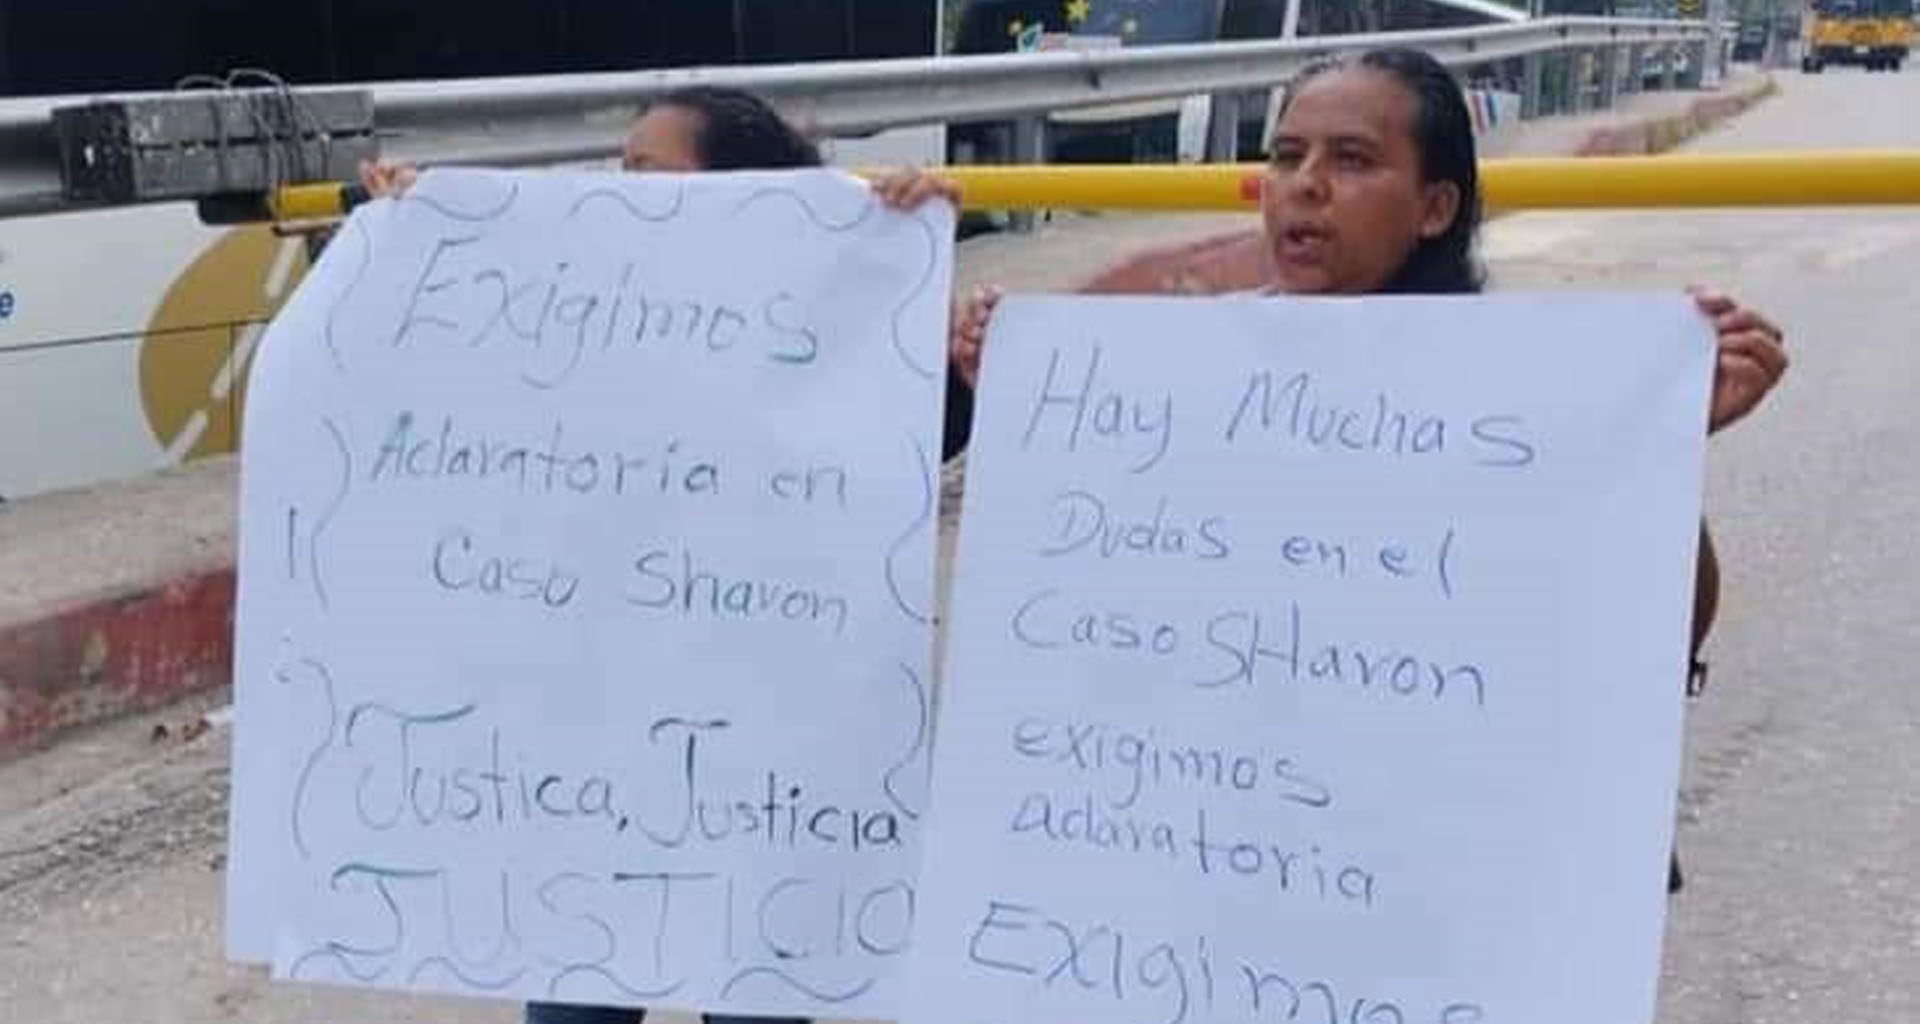 Exigimos
Aclaratoria en
Caso Sharon
Justica, Justicia
JUSTICIA
Hay Muchas
Dudas en el
Caso SHaron
exigimos
aclaratoria
Exigimos